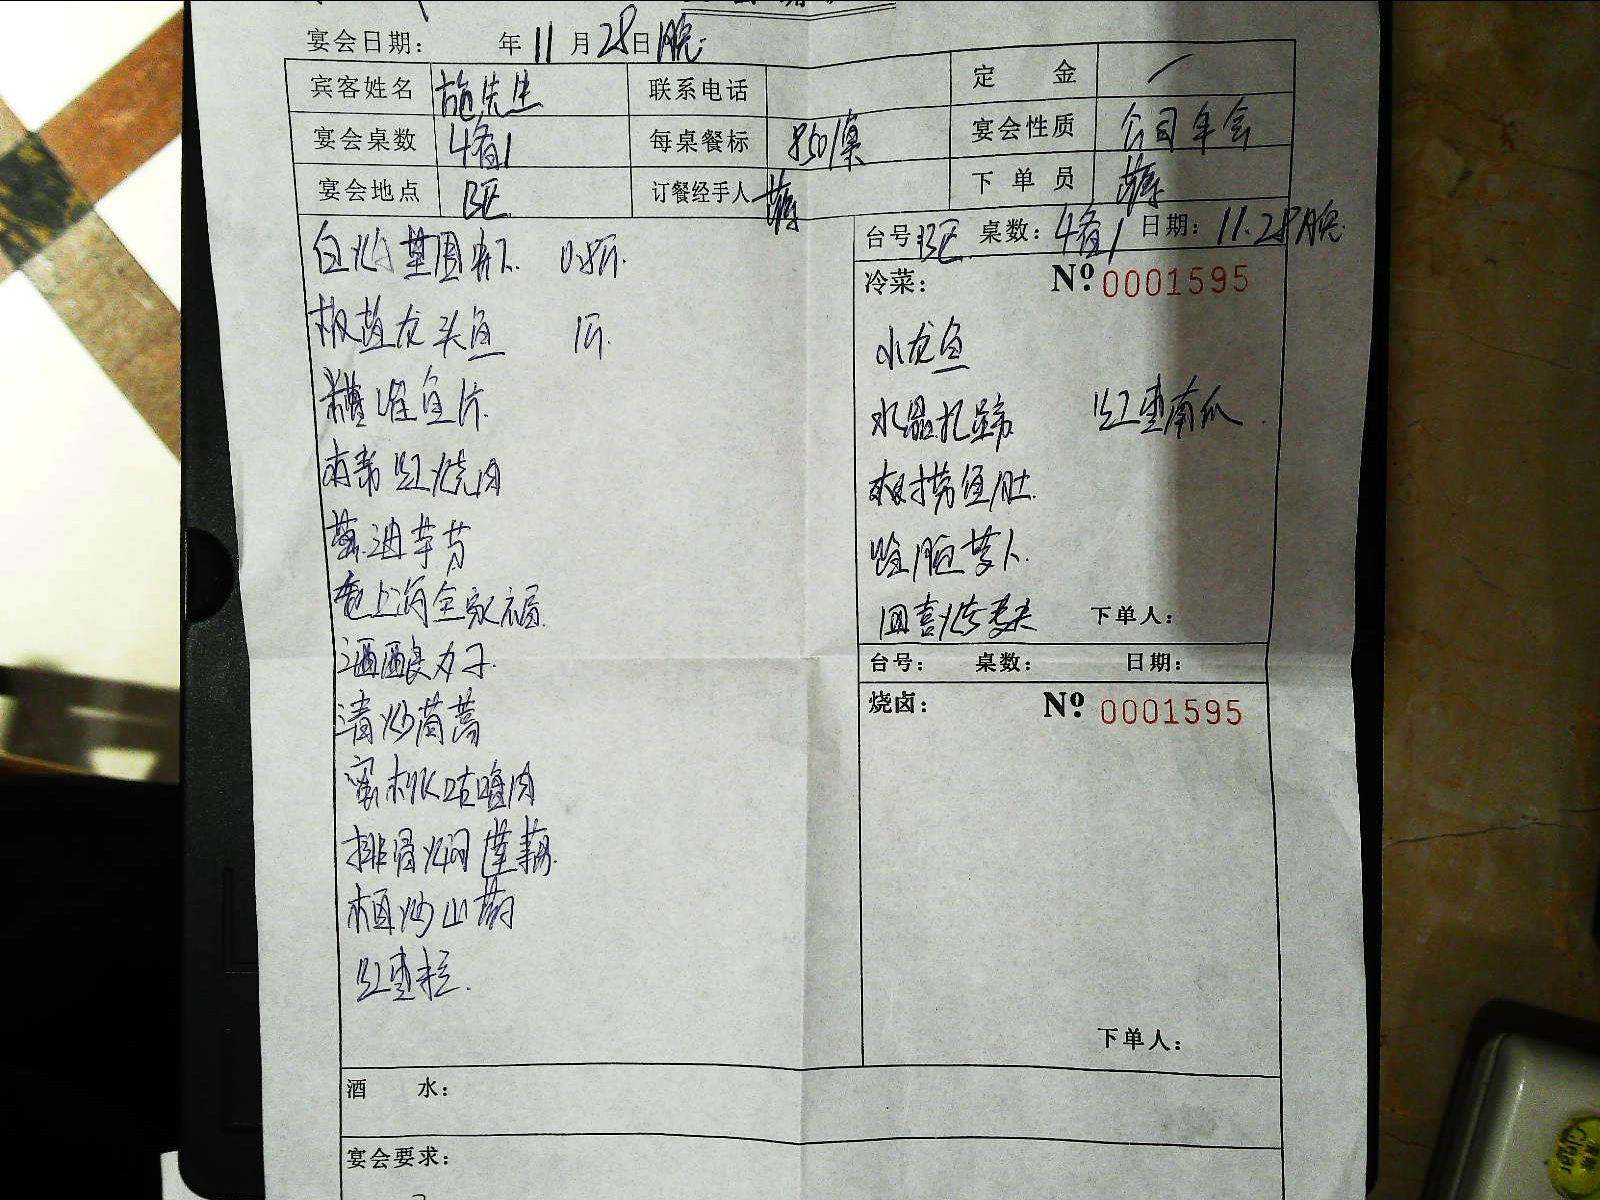 宴会日期： 年11月28日晚
宾客姓名 施先生 联系电话 定 金 /
宴会桌数 4备1 每桌餐标 850/桌 宴会性质 公司年会
宴会地点 B区 订餐经手人 下单员
台号 B区 桌数：4备1 日期：11.28晚
白灼基围虾 0.5斤
椒盐龙头鱼 1斤
糟溜鱼片
本帮红烧肉
葱油芋艿
老上海全家福
酒酿丸子
清炒茼蒿
蜜桃咕噜肉
排骨焖莲藕
红枣
酒 水：
宴会要求：
冷菜： Nº 0001595
小龙鱼
水晶扎蹄 红枣南瓜
萝卜
四喜烤麸 下单人：
台号： 桌数： 日期：
烧卤： Nº 0001595
下单人：
Clear